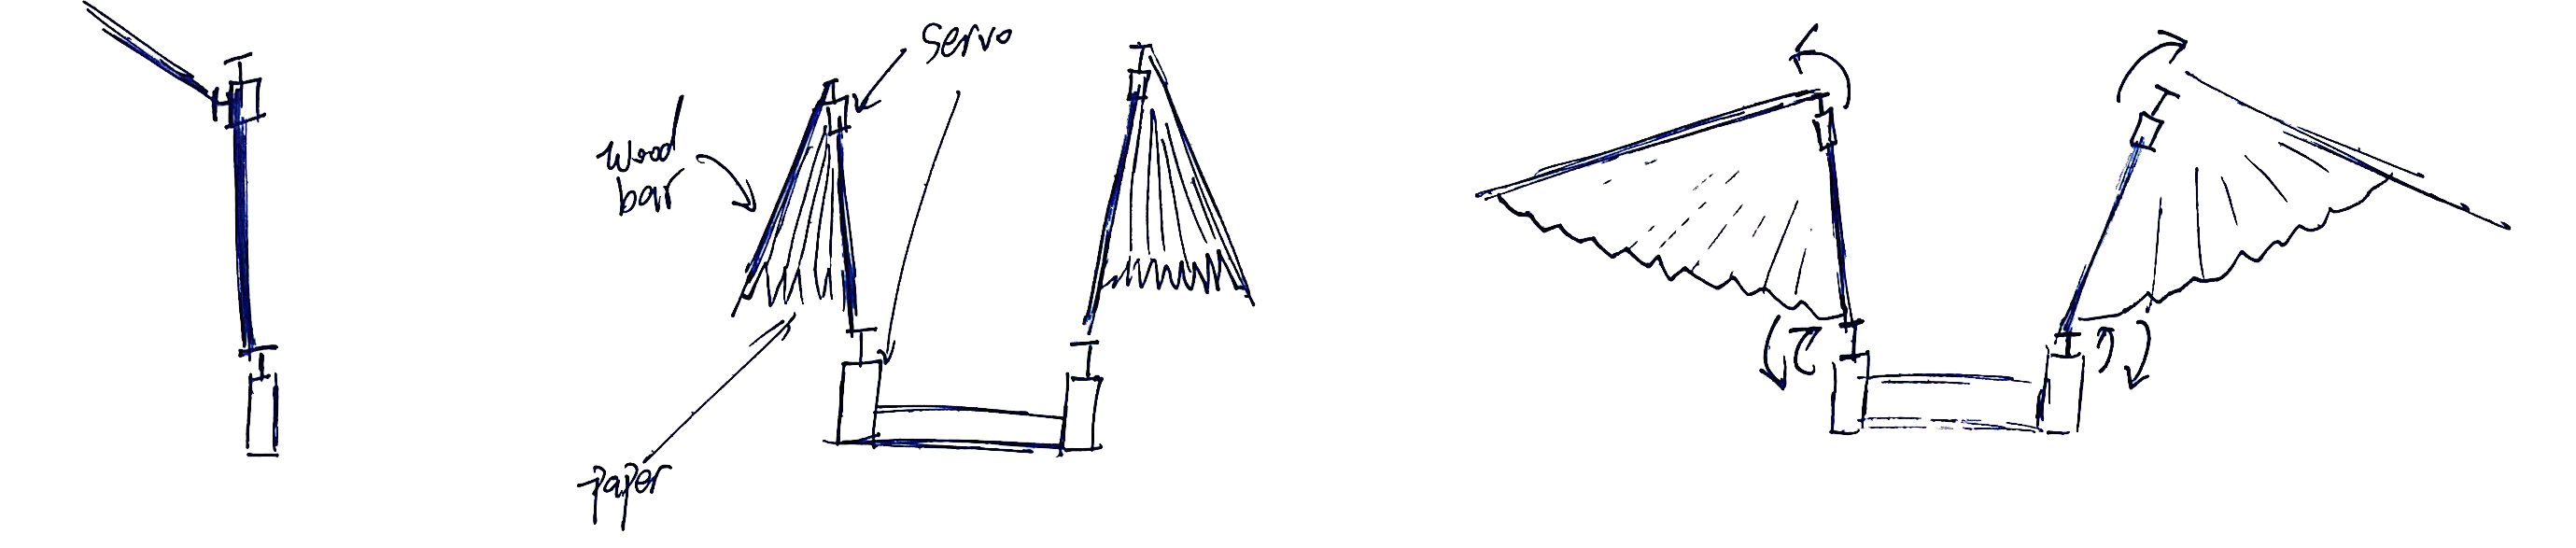 Servo
Wood
bar
paper